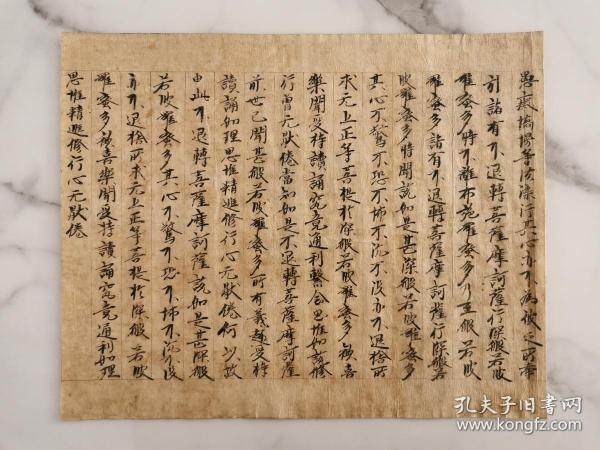 愚癡憍慢等法染汙其心亦不為彼之所牽
引諸有不退轉菩薩摩訶薩行深般若波
羅蜜多時不離布施羅蜜多乃至般若波
羅蜜多諸有不退轉菩薩摩訶薩行深般若
波羅蜜多時聞說如是甚深般若波羅蜜多
其心不驚不恐不怖不沉不沒亦不退捨所
求无上正等菩提於深般若波羅蜜多歡喜
樂聞受持讀誦究竟通利繫念思惟如說修
行曾无猒倦當知如是不退轉菩薩摩訶薩
前世已聞甚般若波羅蜜多所有義趣受持
讀誦如理思惟精進修行心无猒倦何以故
由此不退轉菩薩摩訶薩說如是甚深般
若波羅蜜多其心不驚不恐不怖不沉不沒
亦不退捨所求无上正等菩提於深般若波
羅蜜多歡喜樂聞受持讀誦究竟通利如理
思惟精進修行心无猒倦
孔夫子旧书网
www.kongfz.com